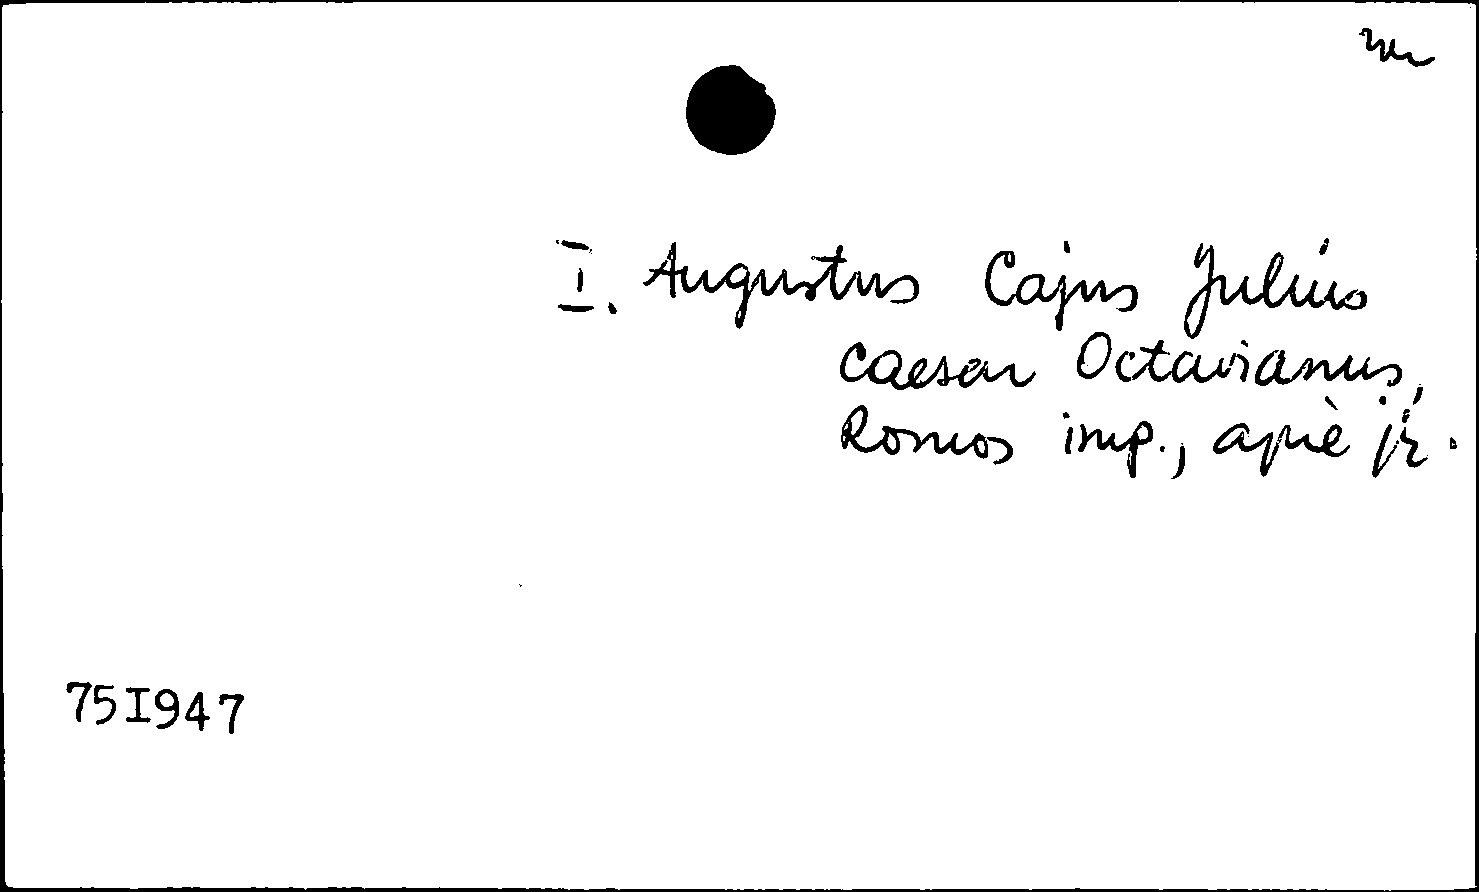 I. Augustus Cajus Julius
Caesar Octavianus,
Romos imp., apie jį.
751947